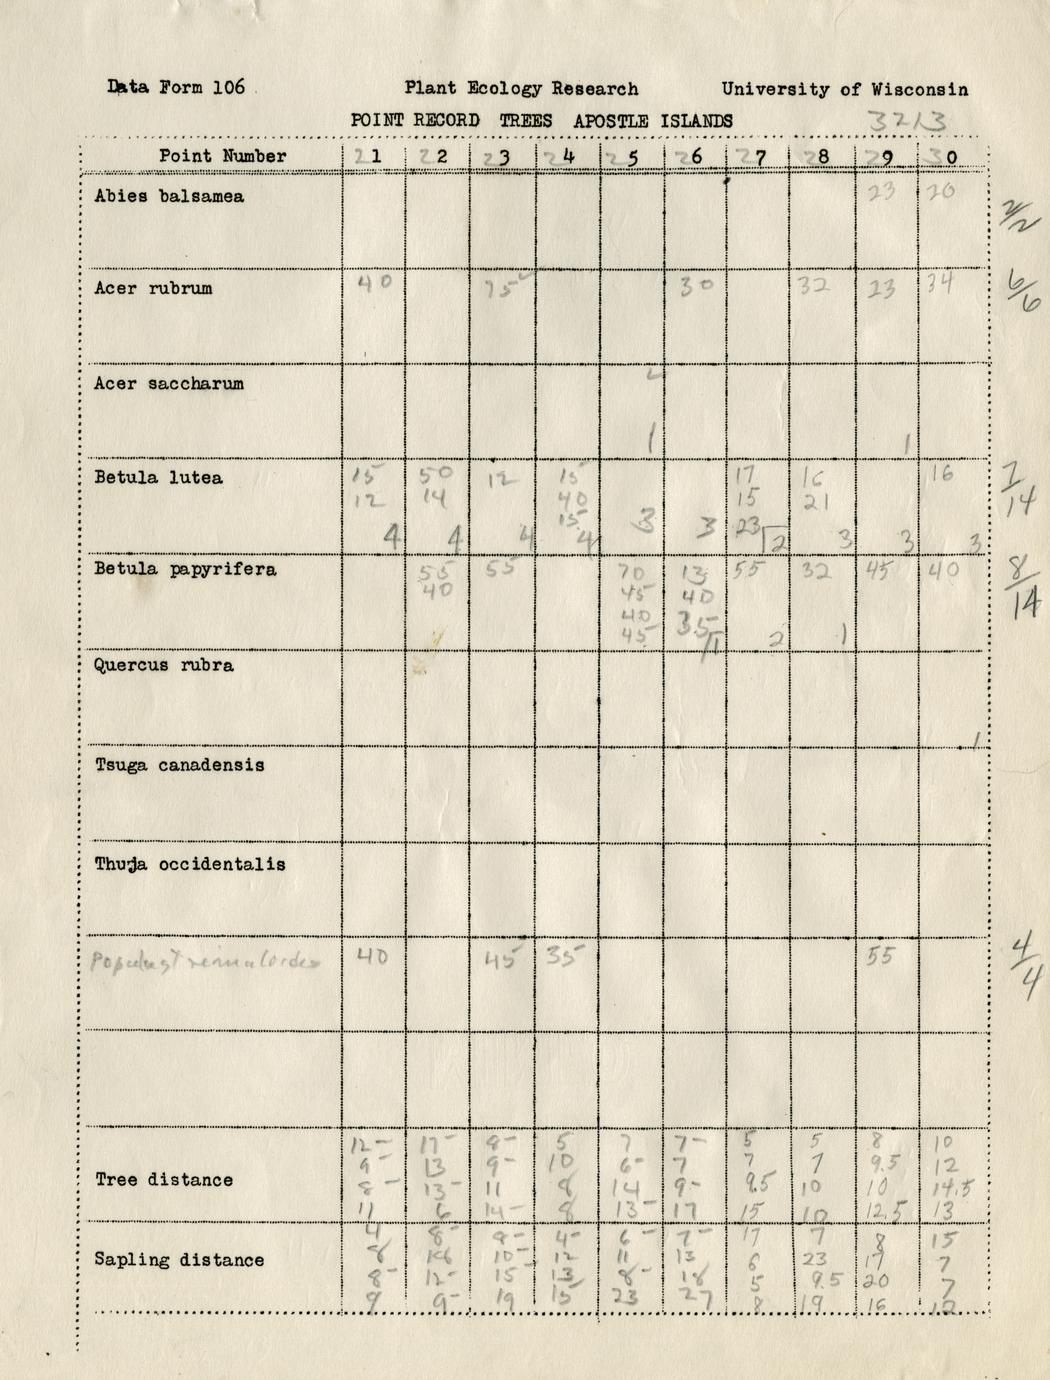 Data Form 106 Plant Ecology Research University of Wisconsin
POINT RECORD TREES APOSTLE ISLANDS 3213
Point Number 21 22 23 24 25 26 27 28 29 30
Abies balsamea 23 20 2/2
Acer rubrum 40 75 30 32 23 34 6/6
Acer saccharum
1 1
Betula lutea 15 50 12 15 17 16 16 7/14
12 14 40 15 21
15 3 3 23
4 4 4 4 2 3 3 3
Betula papyrifera 55 55 70 13 55 32 45 40 8/14
40 45 40
40 35
45 1 2 1
Quercus rubra
1
Tsuga canadensis
Thuja occidentalis
Populus tremuloides 40 45 35 55 4/4
12- 17- 8- 5 7 7- 5 5 8 10
9- 13 9- 10 6- 7 7 7 9.5 12
Tree distance 8- 13- 11 8 14 9- 9.5 10 10 14.5
11 6 14- 8 13- 17 15 10 12.5 13
4 8- 9- 4- 6- 7- 17 7 8 15
Sapling distance 8 10- 12 11 13 6 23 17 7
8- 12- 15 13 8- 18 5 9.5 20 7
9 9- 19 15 23 27 8 19 16 12